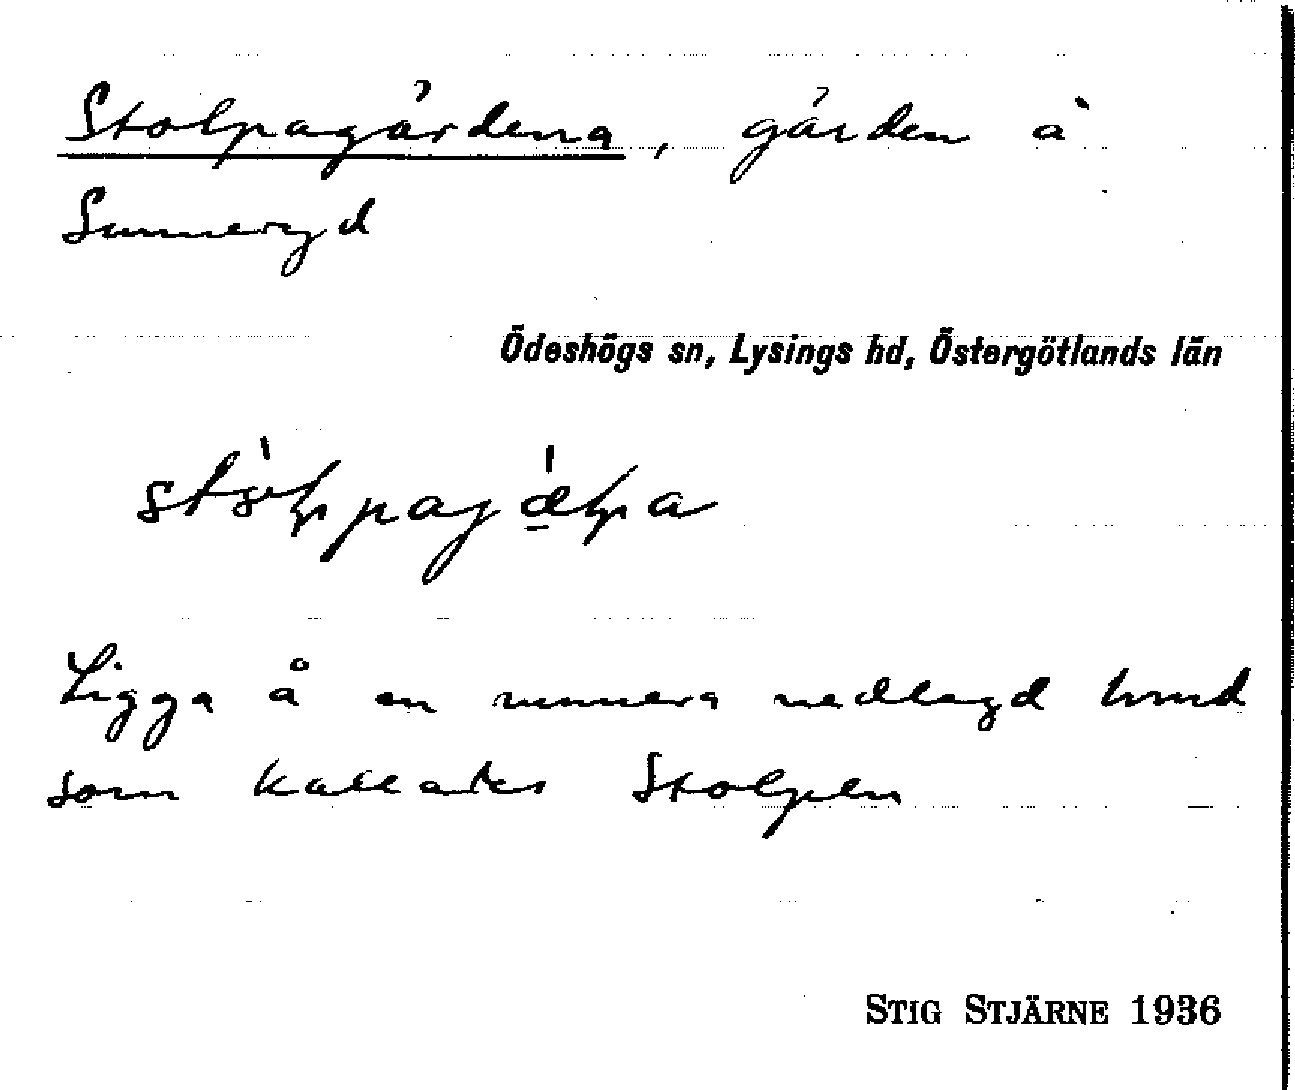 Stolpagärdena, gärden å
Sunneryd
Ödeshögs sn, Lysings hd, Östergötlands län
Ligga å en numera nedlagd
som kallades Stolpen
STIG STJÄRNE 1936